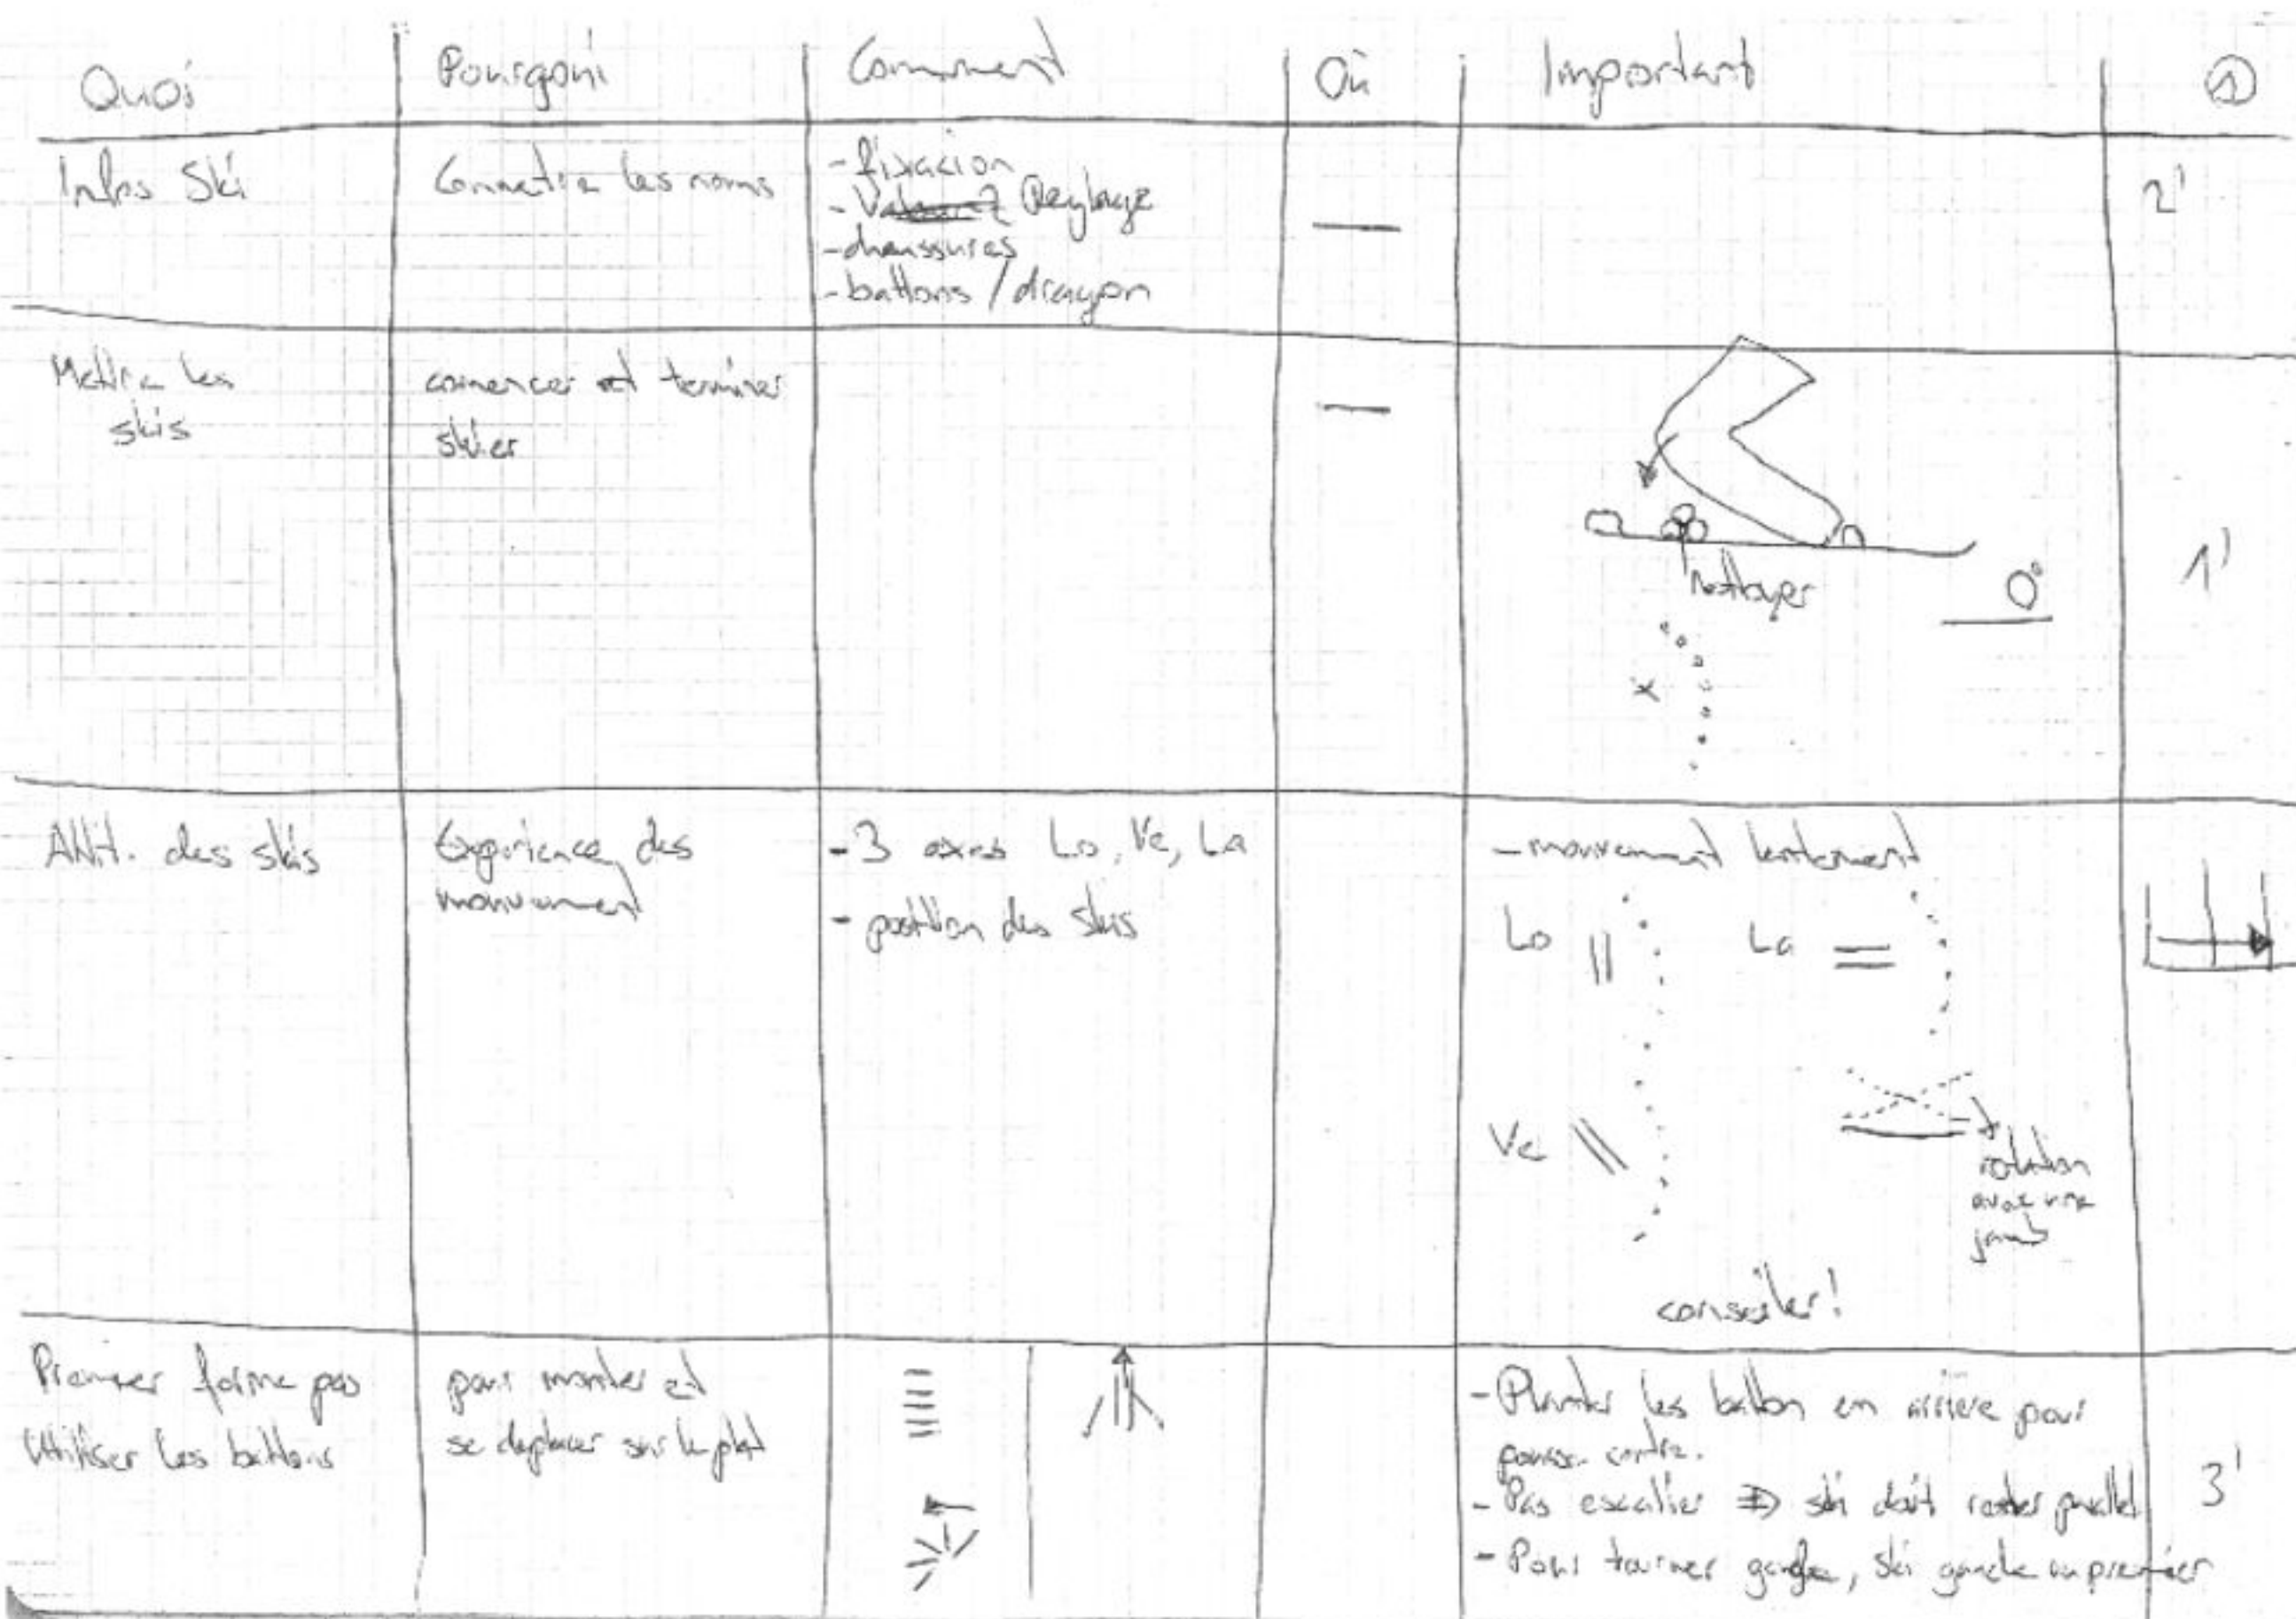 Quoi Pourqoui Comment Où Important ①
Infos Ski
Connetre les noms
- fixacion
- Reglage
- chaussures
- battons / dragon
2'
Mettre les
skis
comencer et terminer
skier
nettoyer
0°
1'
Attit. des skis
Experience des
mouvement
- 3 axes Lo, Ve, La
- position des skis
- mouvement lentement
Lo La
Ve
rotation
avec une
jambe
consiler!
Premier forme pas
Utiliser les battons
pour monter et
se deplacer sur le plat
- Planter les batton en arriere pour
pousser contre.
- Pas escalier => ski doit rester parallel
- Pour tourner gauche, ski gauche en premier
3'